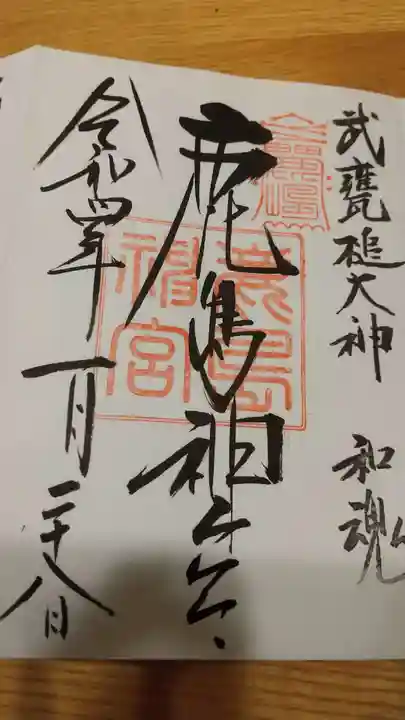 武甕槌大神 和魂
鹿島神宮
鹿島神宮
令和四年 一月二十八日